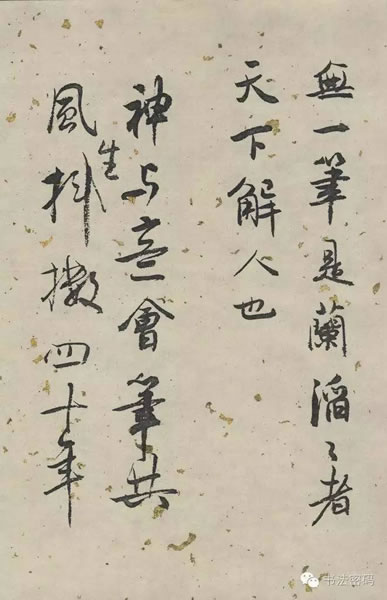 無一筆是蘭滔々者
天下解人也
神与意會筆共
風生抖擻四十年
书法密码